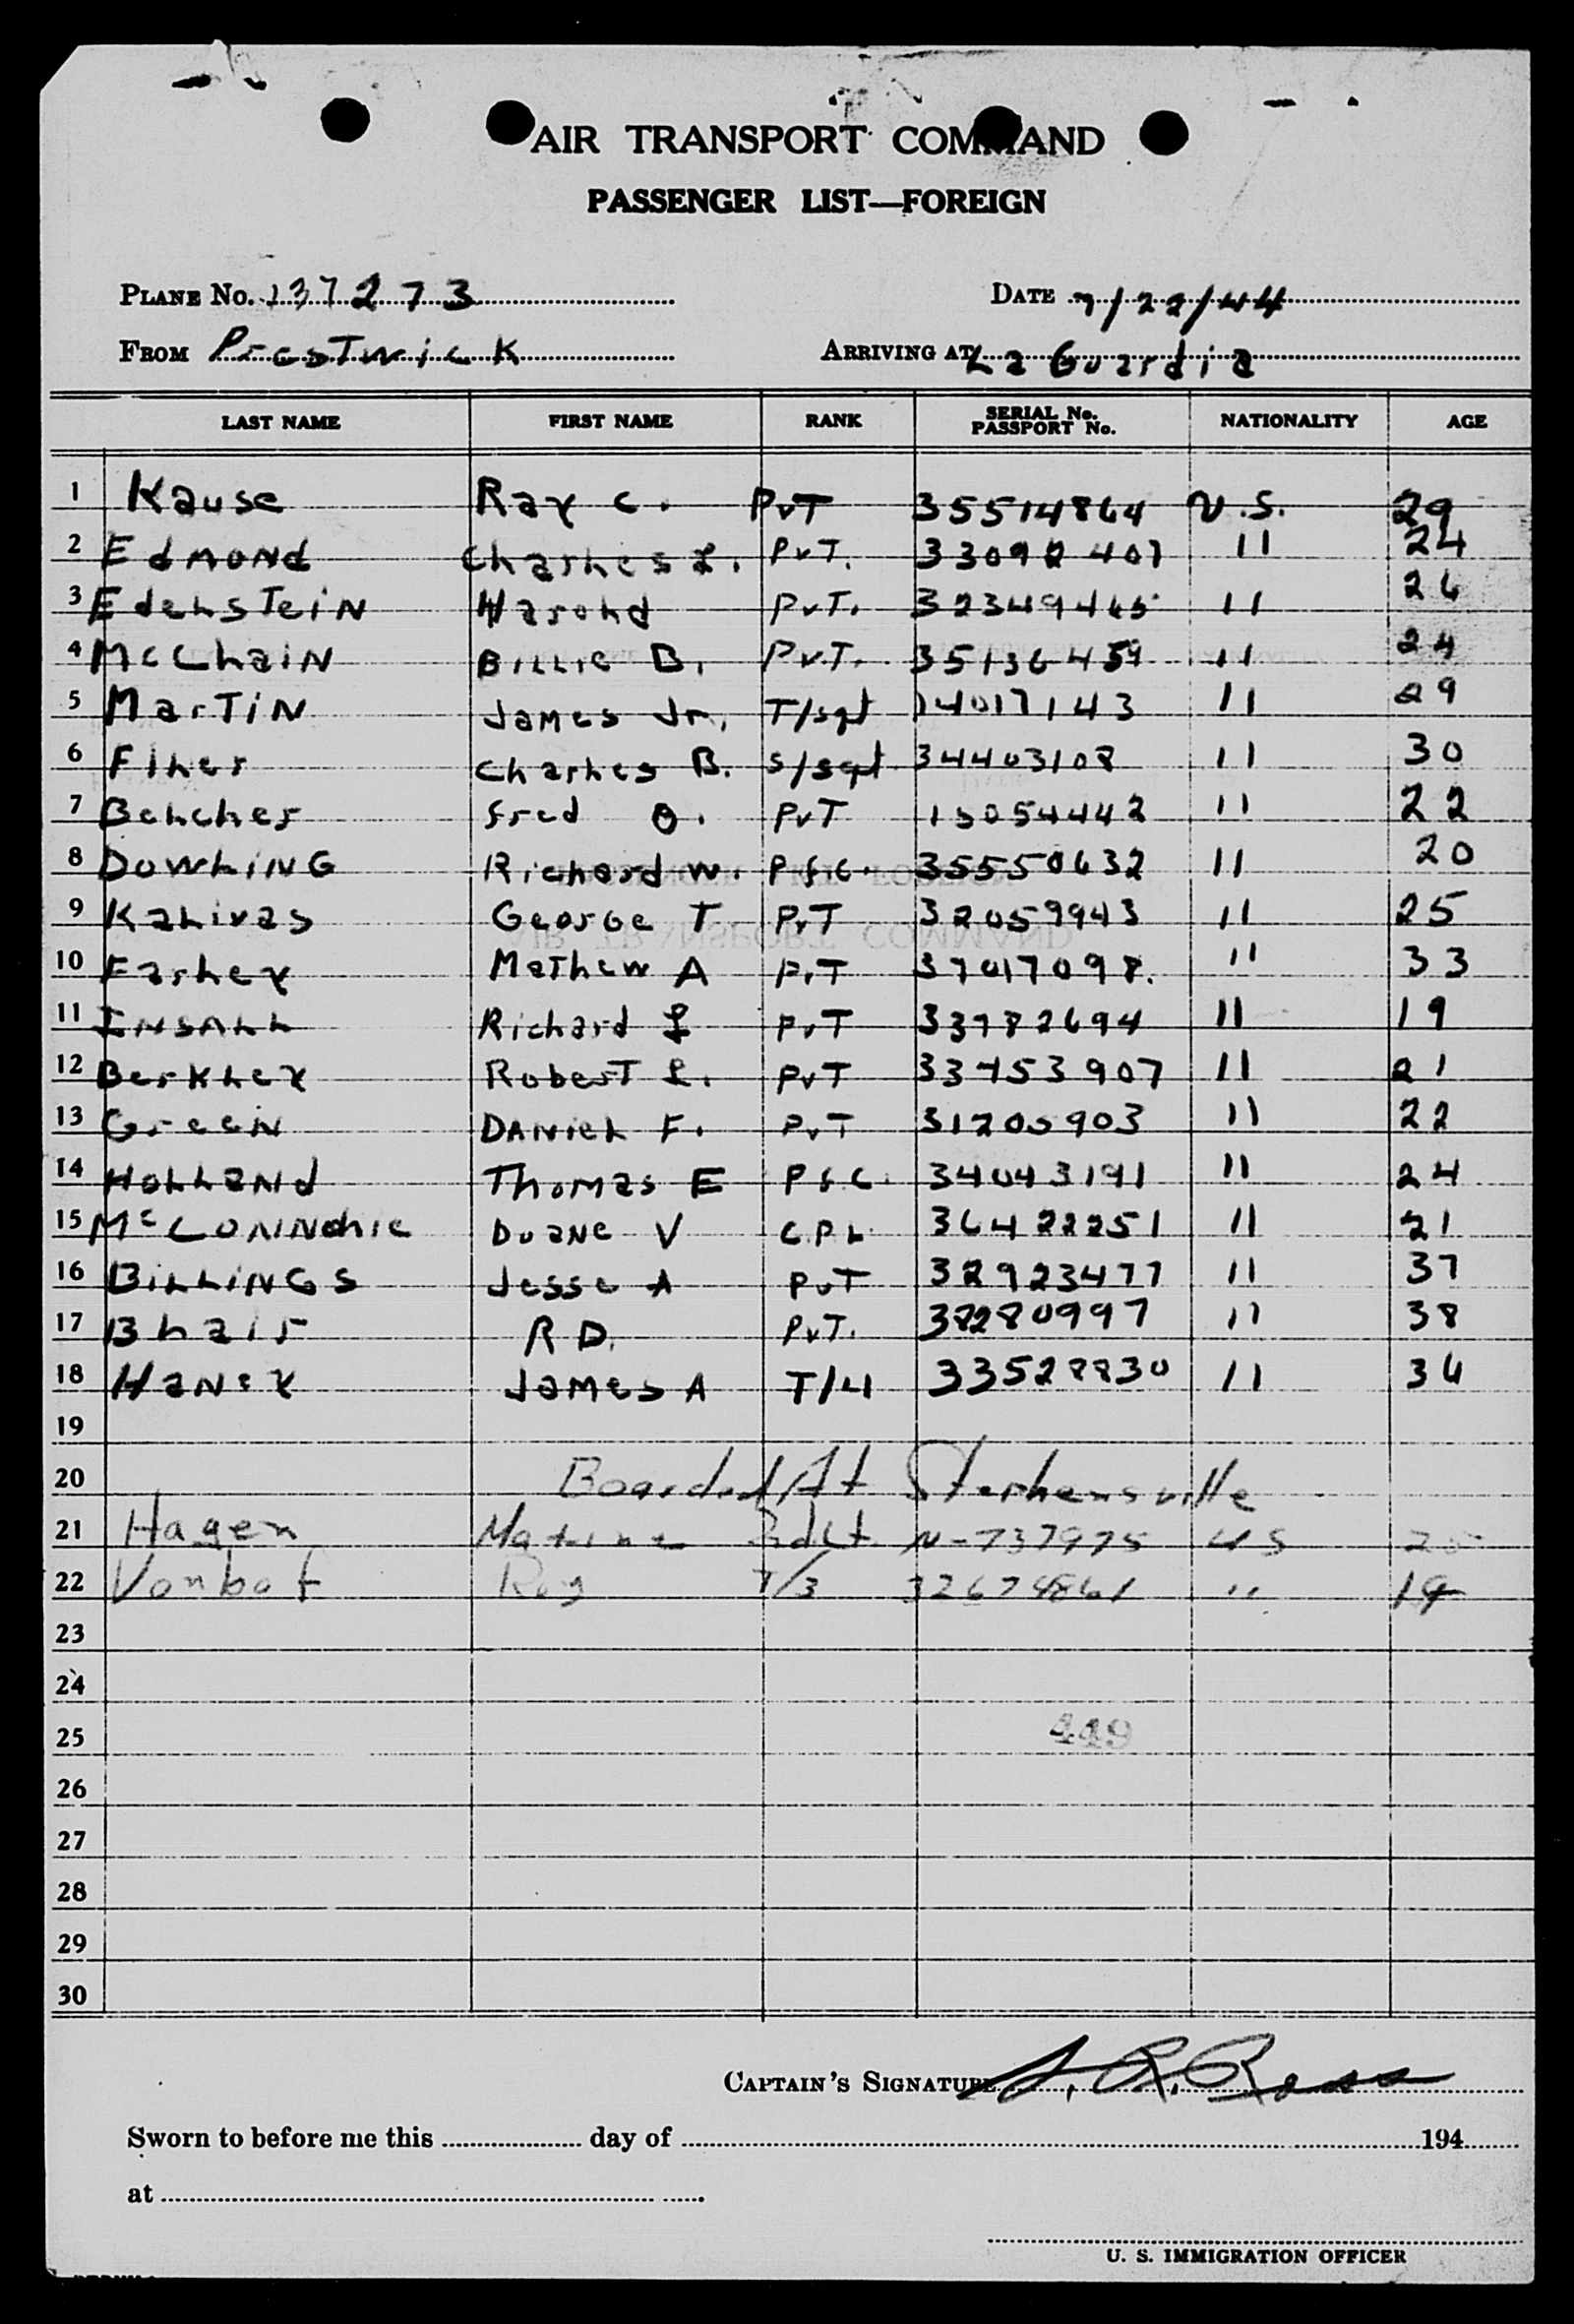 AIR TRANSPORT COMMAND
PASSENGER LIST—FOREIGN
PLANE No. 137273 DATE 7/22/44
FROM PresTwick ARRIVING AT La Guardia
LAST NAME FIRST NAME RANK SERIAL No. PASSPORT No. NATIONALITY AGE
1 Kause Ray C. PvT 35514864 U.S. 29
2 EdmoNd Charles L. PvT. 33092407 11 24
3 EdelsTeiN Harold PvT. 32349465 11 26
4 McClaiN BiLLie B. PvT. 35136459 11 24
5 MarTiN James Jr. T/sgt 14017143 11 29
6 Filer Charles B. S/sgt 34403108 11 30
7 Belcher Fred O. PvT 15054442 11 22
8 DowLiNG Richard W. Pfc. 35550632 11 20
9 Kalivas George T PvT 32059943 11 25
10 Farley Mathew A PvT 37017098. 11 33
11 INSALL Richard L PvT 33782694 11 19
12 Berkley RoberT L. PvT 33453907 11 21
13 GreeN DANieL F. PvT 31205903 11 22
14 HoLLaNd Thomas E Pfc. 34043191 11 24
15 McCoNNchie DuaNe V C.P.L. 36422251 11 21
16 BiLLiNGS Jesse A PvT 32923477 11 37
17 Blair R D. PvT. 38280997 11 38
18 HaNey James A T/4 33528830 11 36
19
20 Boarded At Stephensville
21 Hagen Maxine 2ndLt N-737975 US
22 Vonbot Roy T/3 11 19
23
24
25 449
26
27
28
29
30
CAPTAIN'S SIGNATURE R. Ross
Sworn to before me this day of 194
at
U. S. IMMIGRATION OFFICER